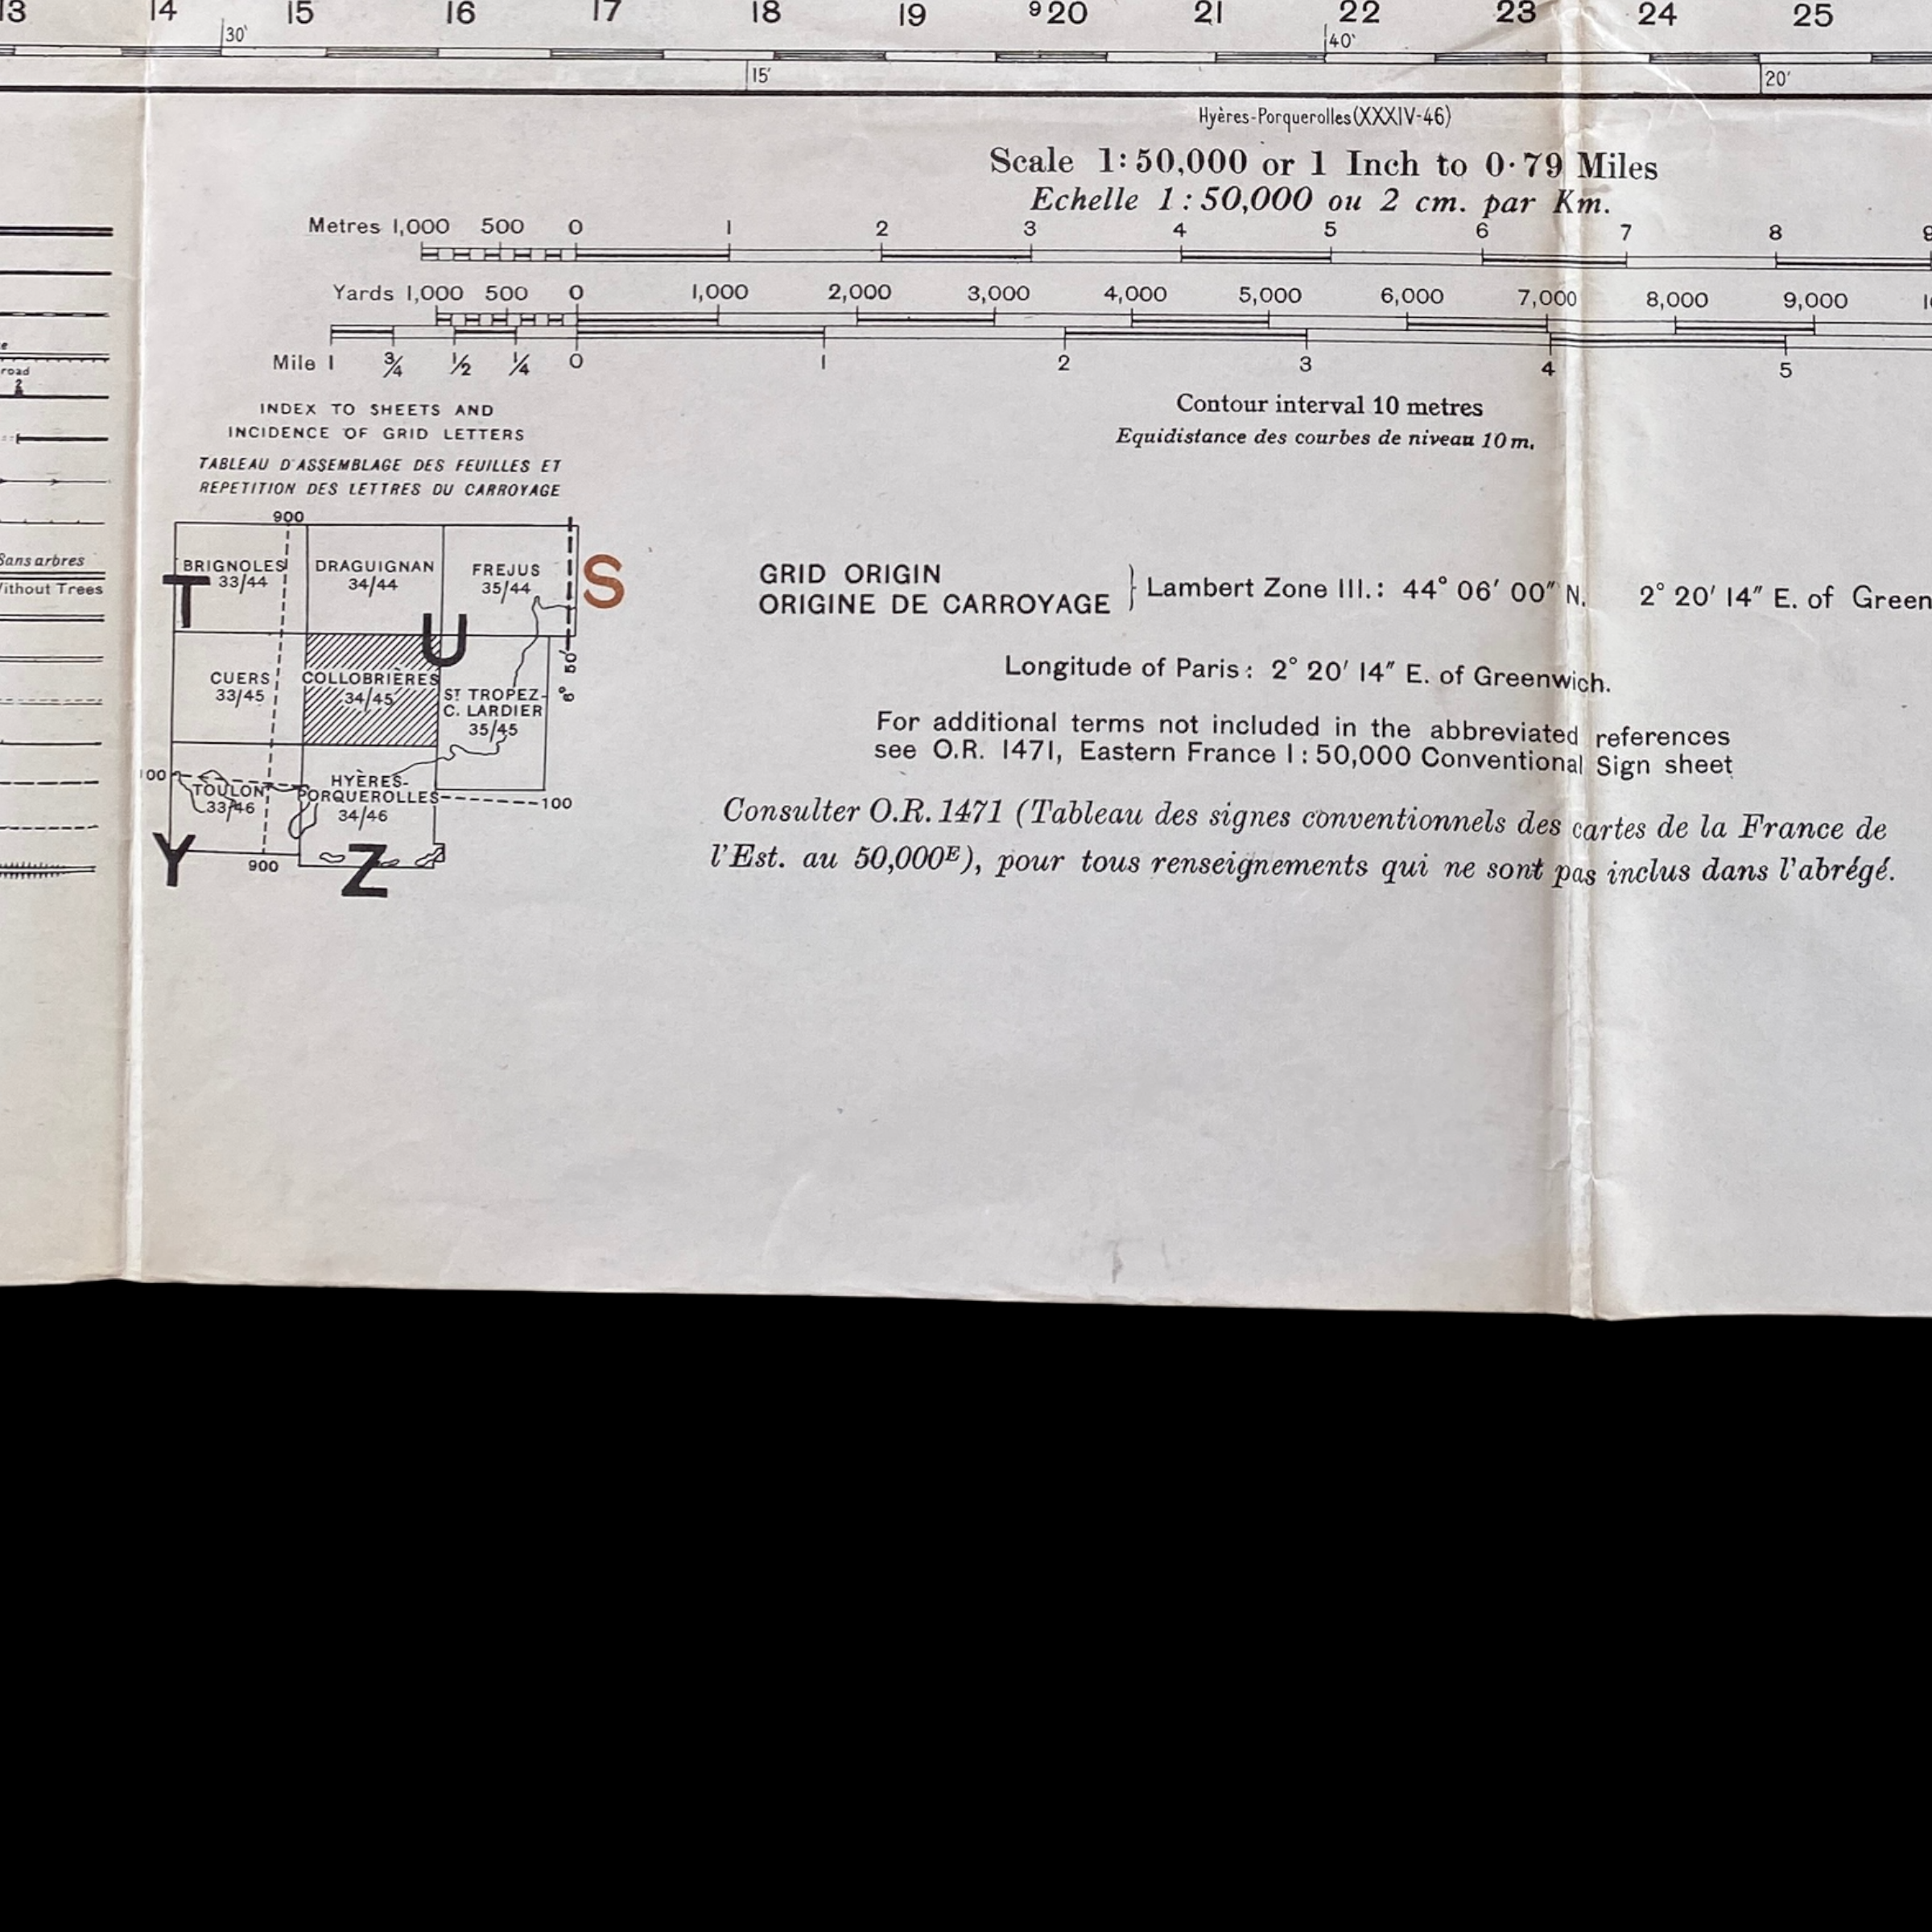 13 14 15 16 17 18 19 ⁹20 21 22 23 24 25
30' 40'
15' 20'
Hyères-Porquerolles(XXXIV-46)
Scale 1:50,000 or 1 Inch to 0·79 Miles
Echelle 1:50,000 ou 2 cm. par Km.
Metres 1,000 500 0 1 2 3 4 5 6 7 8 9
Yards 1,000 500 0 1,000 2,000 3,000 4,000 5,000 6,000 7,000 8,000 9,000
Mile 1 ¾ ½ ¼ 0 1 2 3 4 5
road
2
Sans arbres
Without Trees
INDEX TO SHEETS AND
INCIDENCE OF GRID LETTERS
TABLEAU D'ASSEMBLAGE DES FEUILLES ET
REPETITION DES LETTRES DU CARROYAGE
900
BRIGNOLES
33/44
DRAGUIGNAN
34/44
FREJUS
35/44
S
T
U
CUERS
33/45
COLLOBRIÈRES
34/45
Sᵀ TROPEZ-
C. LARDIER
35/45
6° 50'
100
TOULON
33/46
HYÈRES-
PORQUEROLLES
34/46
100
Y
900
Z
Contour interval 10 metres
Equidistance des courbes de niveau 10 m.
GRID ORIGIN
ORIGINE DE CARROYAGE
Lambert Zone III.: 44° 06′ 00″ N. 2° 20′ 14″ E. of Green
Longitude of Paris: 2° 20′ 14″ E. of Greenwich.
For additional terms not included in the abbreviated references
see O.R. 1471, Eastern France 1:50,000 Conventional Sign sheet
Consulter O.R. 1471 (Tableau des signes conventionnels des cartes de la France de
l'Est. au 50,000ᴱ), pour tous renseignements qui ne sont pas inclus dans l'abrégé.